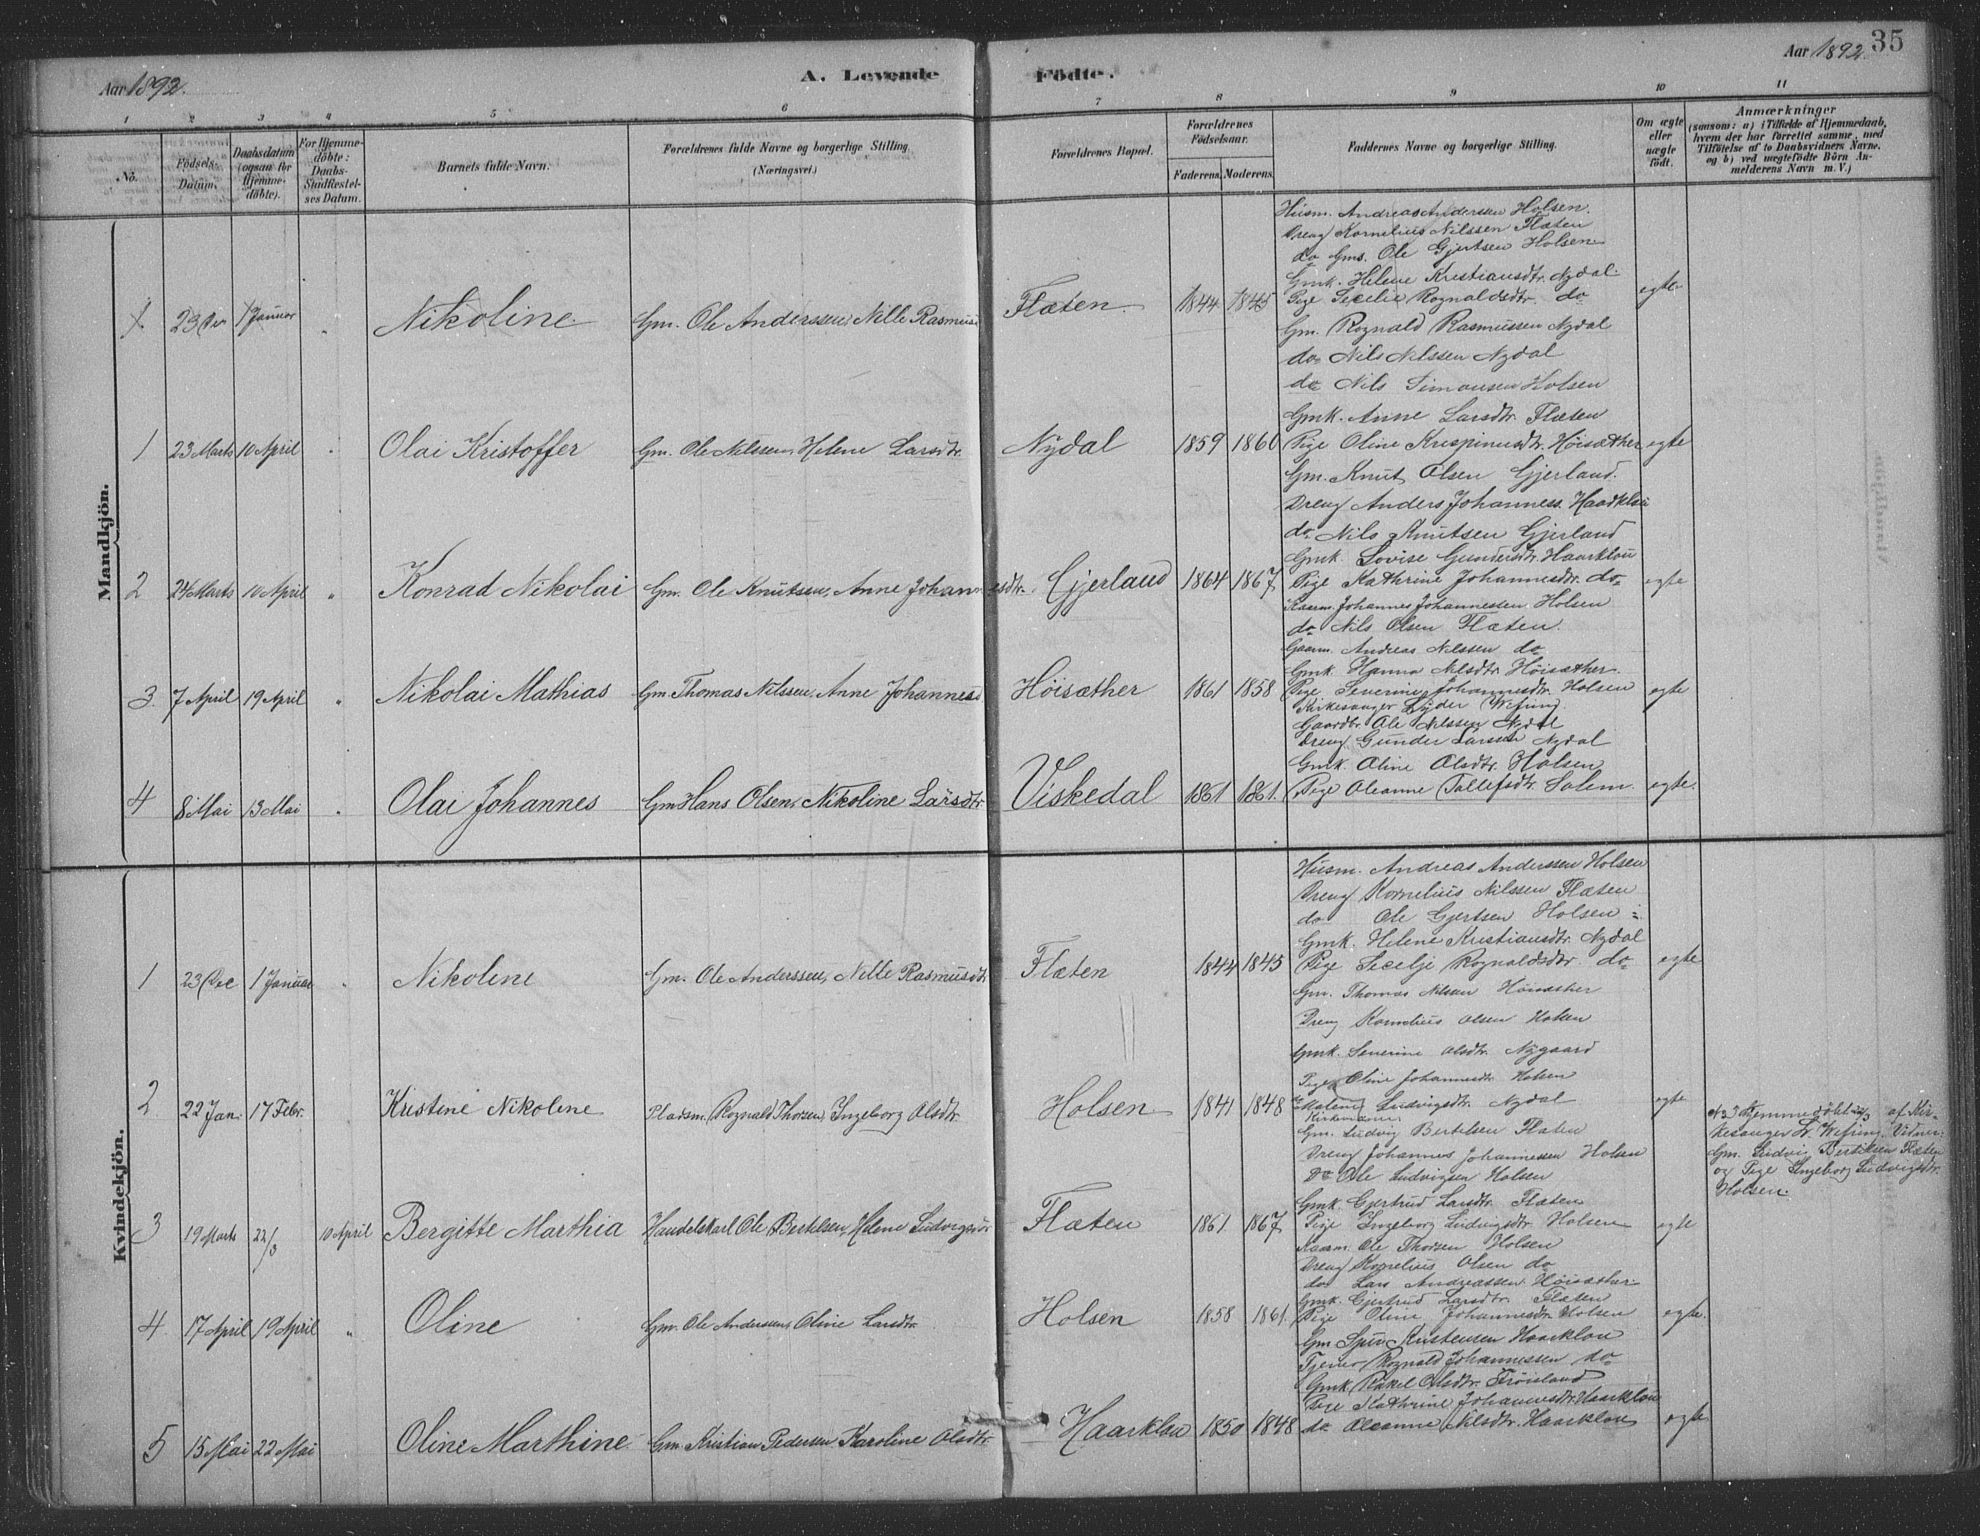 Aar 1892.
A. Levende
Födte.
Aar 1892.
35
1 2 3 4 5 6 7 8 9 10 11
No.
Födsels-
Datum.
Daabsdatum
(ogsaa for
Hjemme-
döbte).
For Hjemme-
döbte:
Daabs-
Stadfæstel-
ses Datum.
Barnets fulde Navn.
Forældrenes fulde Navne og borgerlige Stilling.
(Næringsvei.)
Forældrenes Bopæl.
Forældrenes
Födselsaar.
Faderens. Moderens.
Faddernes Navne og borgerlige Stilling.
Om ægte
eller
uægte
födt.
Anmærkninger
(saasom: a) i Tilfælde af Hjemmedaab,
hvem der har forrettet samme, med
Tilföielse af to Daabsvidners Navne,
og b) ved uægtefödte Börn An-
melderens Navn m. V.)
Mandkjön.
1 23 Dec 1 Januar " Nikoline Gm. Ole Anderssen, Nille Rasmusd Flæten. 1844 1845 egte
Husm. Andreas Anderssen Holsen.
Dreng Kornelius Nilssen Flæten
do Gms. Ole Gjertsen Holsen
Gmk. Helene Kristiansdtr. Nydal.
Pige Secelie Rognaldsdtr. do
1 23 Marts 10 April " Olai Kristoffer Gm. Ole Nilssen, Helene Larsdtr. Nydal 1859 1860 egte
Gm. Rognald Rasmussen Nydal
do Nils Nilssen Nydal
do Nils Simonsen Holsen
Gmk. Anne Larsdtr. Flæten
Pige Oline Krespinusdtr. Höisæther
2 24 Marts 10 April " Konrad Nikolai Gm. Ole Knutsen, Anne Johannesdtr. Gjerland 1864 1867 egte
Gm. Knut Olsen Gjerland.
Dreng Anders Johanness. Haarklau
do Nils Knutsen Gjerland
Gmk. Lovise Gundersdtr. Haarklau
Pige Kathrine Johannesdtr. do
3. 7 April 19 April " Nikolai Mathias Gm. Thomas Nilssen, Anne Johannesd Höisæther 1861 1858 egte
Kaarm. Johannes Johannessen Holsen
do Nils Olsen Flæten.
Gaarm. Andreas Nilssen do
Gmk. Hanna Nilsdtr. Höisæther
Pige Severine Johannesdtr. Holsen
4 8 Mai 13 Mai " Olai Johannes Gm Hans Olsen, Nikoline Larsdtr Viskedal 1861 1861. egte.
Kirkesanger Lyder Wefring
Gaardbr. Ole Nilssen Nydal
Dreng Gunder Larsen Nydal
Gmk. Oline Olsdtr. Holsen
Pige Oleanne Tollefsdtr. Solem.
Kvindekjön.
1 23 Dec 1 Januar " Nikoline Gm. Ole Anderssen, Nille Rasmusdtr Flæten 1844 1845 egte
Husm. Andreas Anderssen Holsen
Dreng Kornelius Nilssen Flæten
do Ole Gjertsen Holsen
Gmk. Helene Kristiansdtr. Nydal
Pige Secelje Rognaldsdtr. do
2 22 Jan. 17 Febr. Kristine Nikoline Pladsm. Rognald Thorsen, Ingeborg Olsdtr. Holsen 1841 1848 egte
Gm. Thomas Nilsen Höisæther
Dreng Kornelius Olsen Holsen
Gmk. Severine Olsdtr. Nygaard
Pige Oline Johannesdtr. Holsen
Malene Ludvigsdtr. Nydal
3 19 Marts 22/3 10 April Bergitte Marthia Handelskarl Ole Bertelsen, Helene Ludvigsdtr Flæten 1861 1867 egte
Gm. Ludvig Bertelsen Flæten
Dreng Johannes Johannessen Holsen
Do Ole Ludvigsen Holsen
Gmk. Gjertrud Larsdtr. Flæten
Pige Ingeborg Ludvigsdtr. Holsen
No 3 Hjemmedöbt 22/3 af Kir-
kesanger L. Wefring. Vidner:
Gm. Ludvig Bertelsen Flæten
og Pige Ingeborg Ludvigsdtr.
Holsen.
4 17 April 19 April " Oline Gm. Ole Andersen, Oline Larsdtr Holsen 1858 1861. egte.
Kaarm. Ole Thorsen Holsen
Dreng Kornelius Olsen do
do Lars Andreassen Höisæther
Gmk. Gjertrud Larsdtr. Flæten
Pige Oline Johannesdtr. Holsen
5 15 Mai 22 Mai Oline Marthine Gm. Kristian Pedersen Karoline Olsdtr. Haarklau 1850 1848 egte
Gm Kristensen Haarklau
Tjener Rognald Johannessen do
Gmk. Rakel Olsdtr. Fröisland
Pige Kathrine Johannesdtr. Haarklau
do Oleanne Nilsdtr. Haarklau